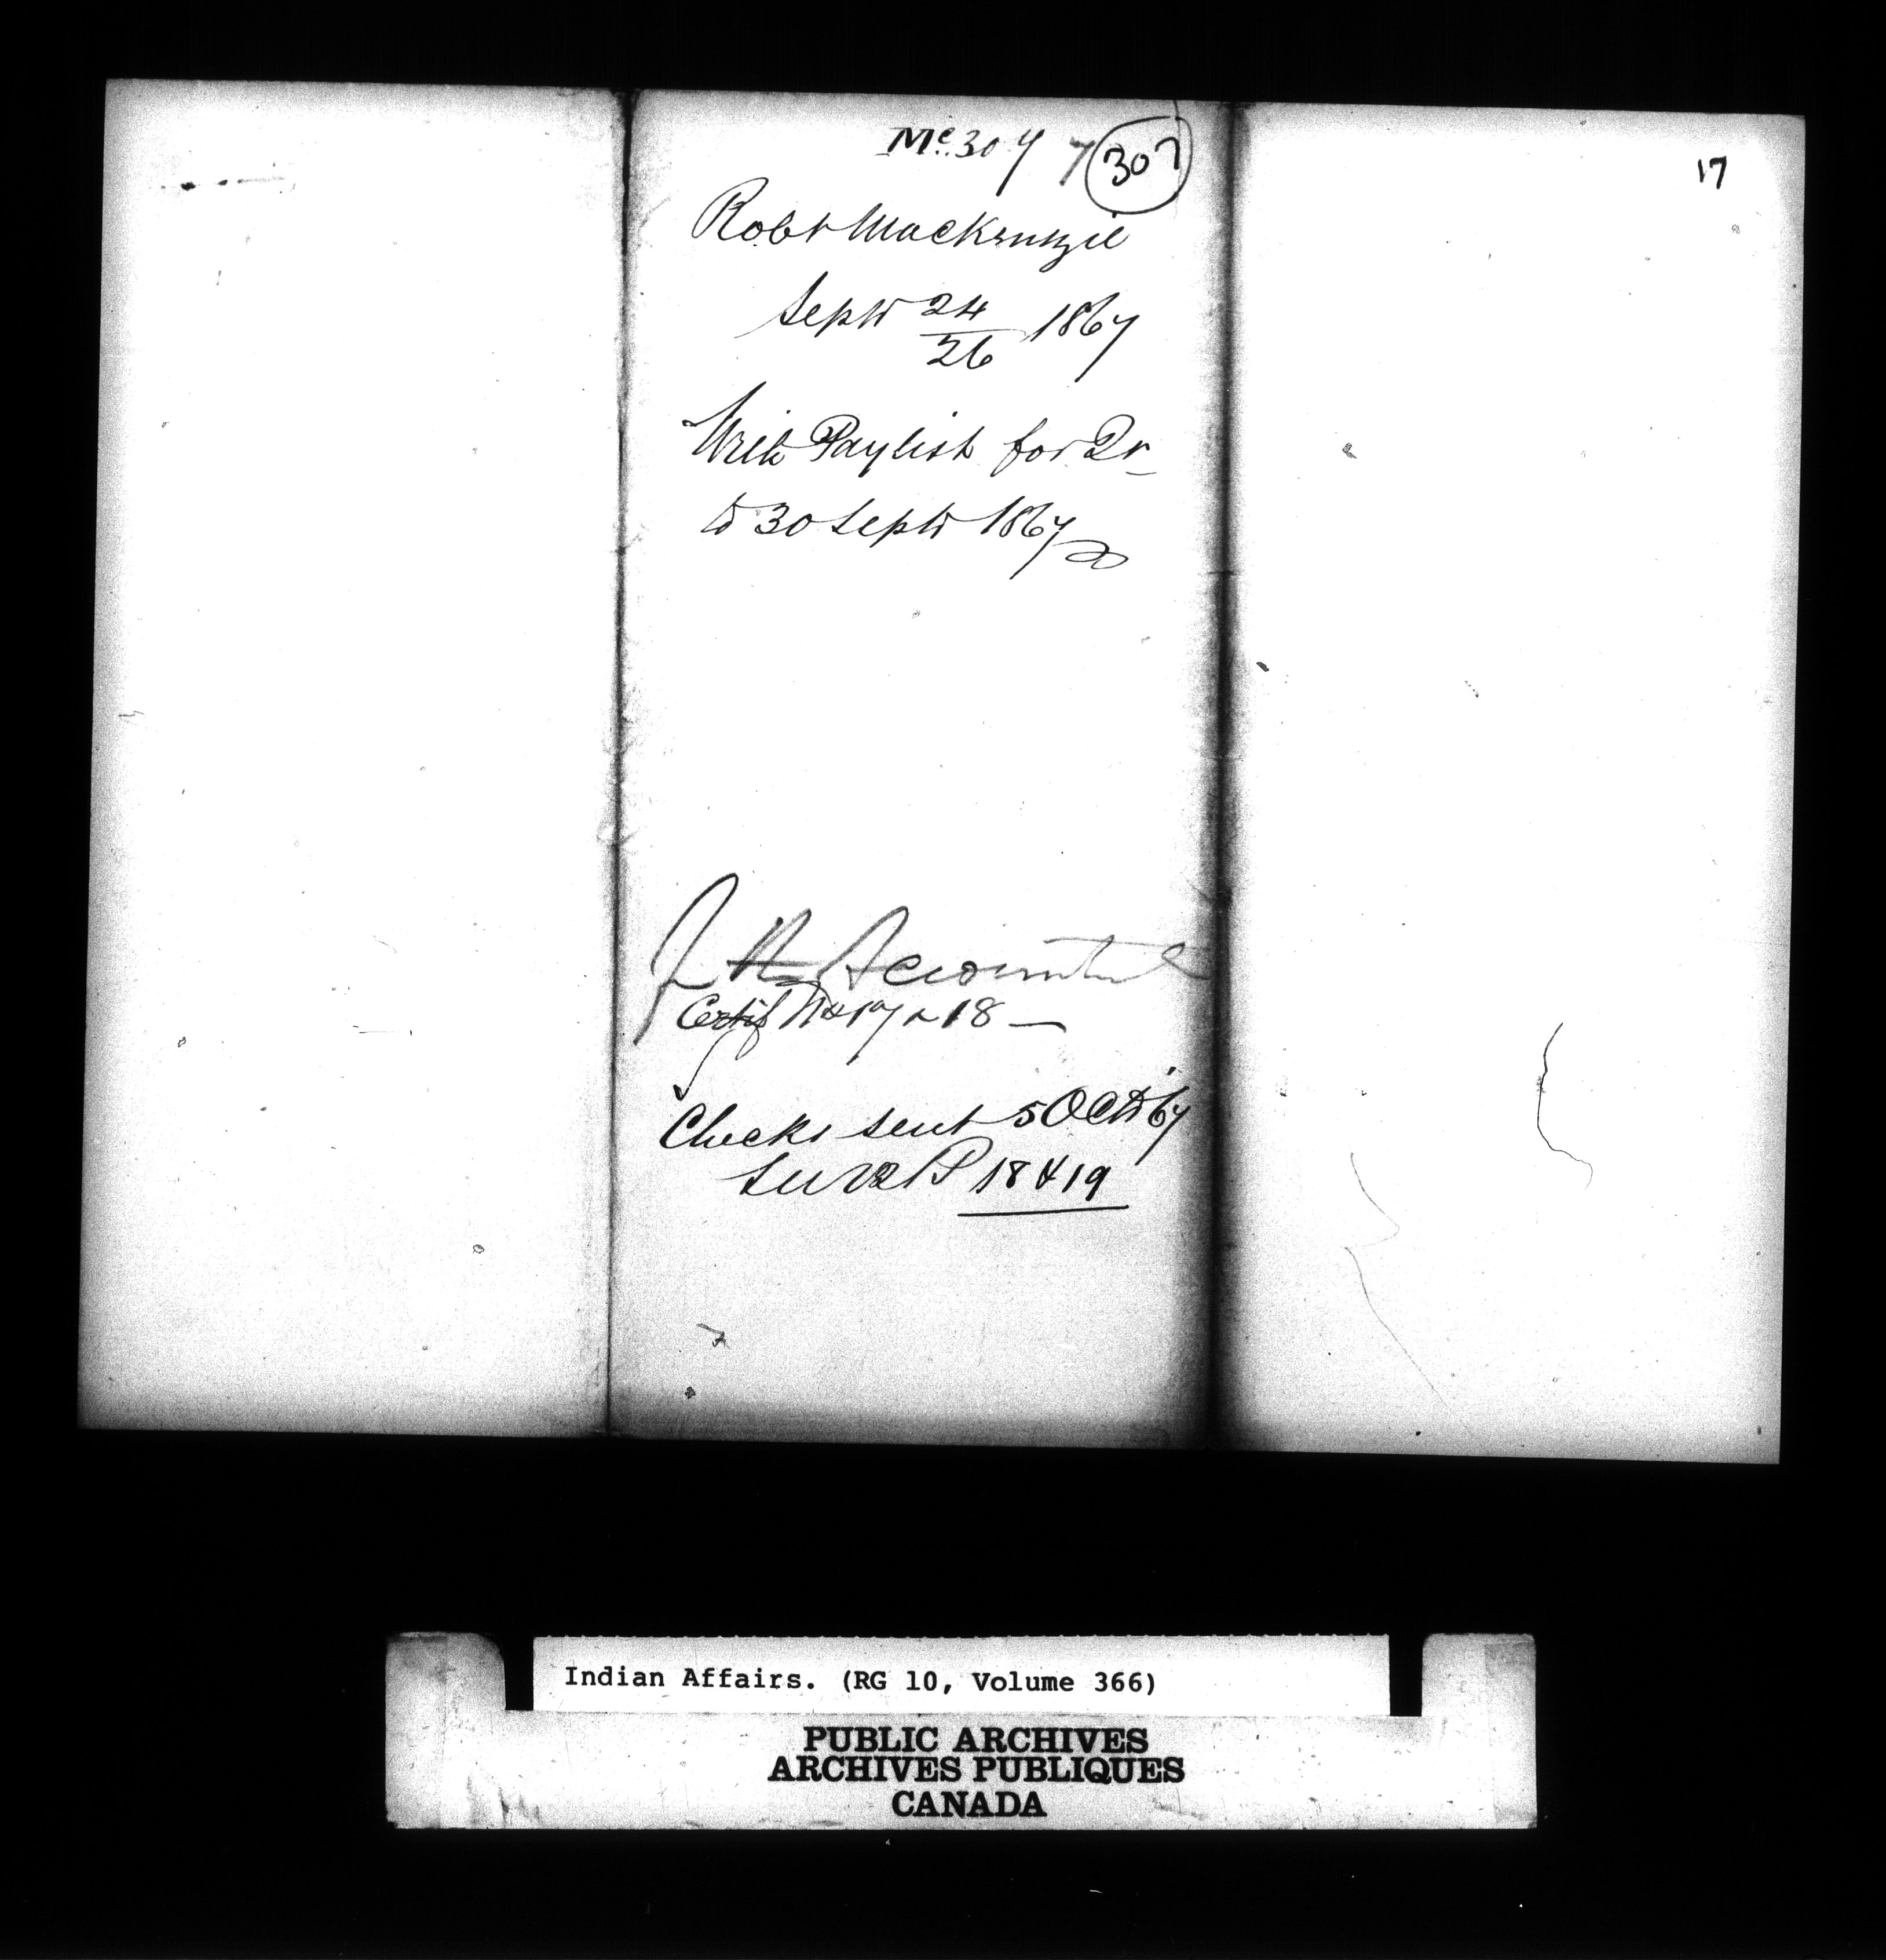 Mc. 307 7 307
17
Robt Mackenzie
Septr 24/26 1867
With Paylist for Qr
to 30 Septr 1867
Accountant
Certif No 17 & 18 —
Checks sent 5 Oct '67
18 & 19
Indian Affairs. (RG 10, Volume 366)
PUBLIC ARCHIVES
ARCHIVES PUBLIQUES
CANADA